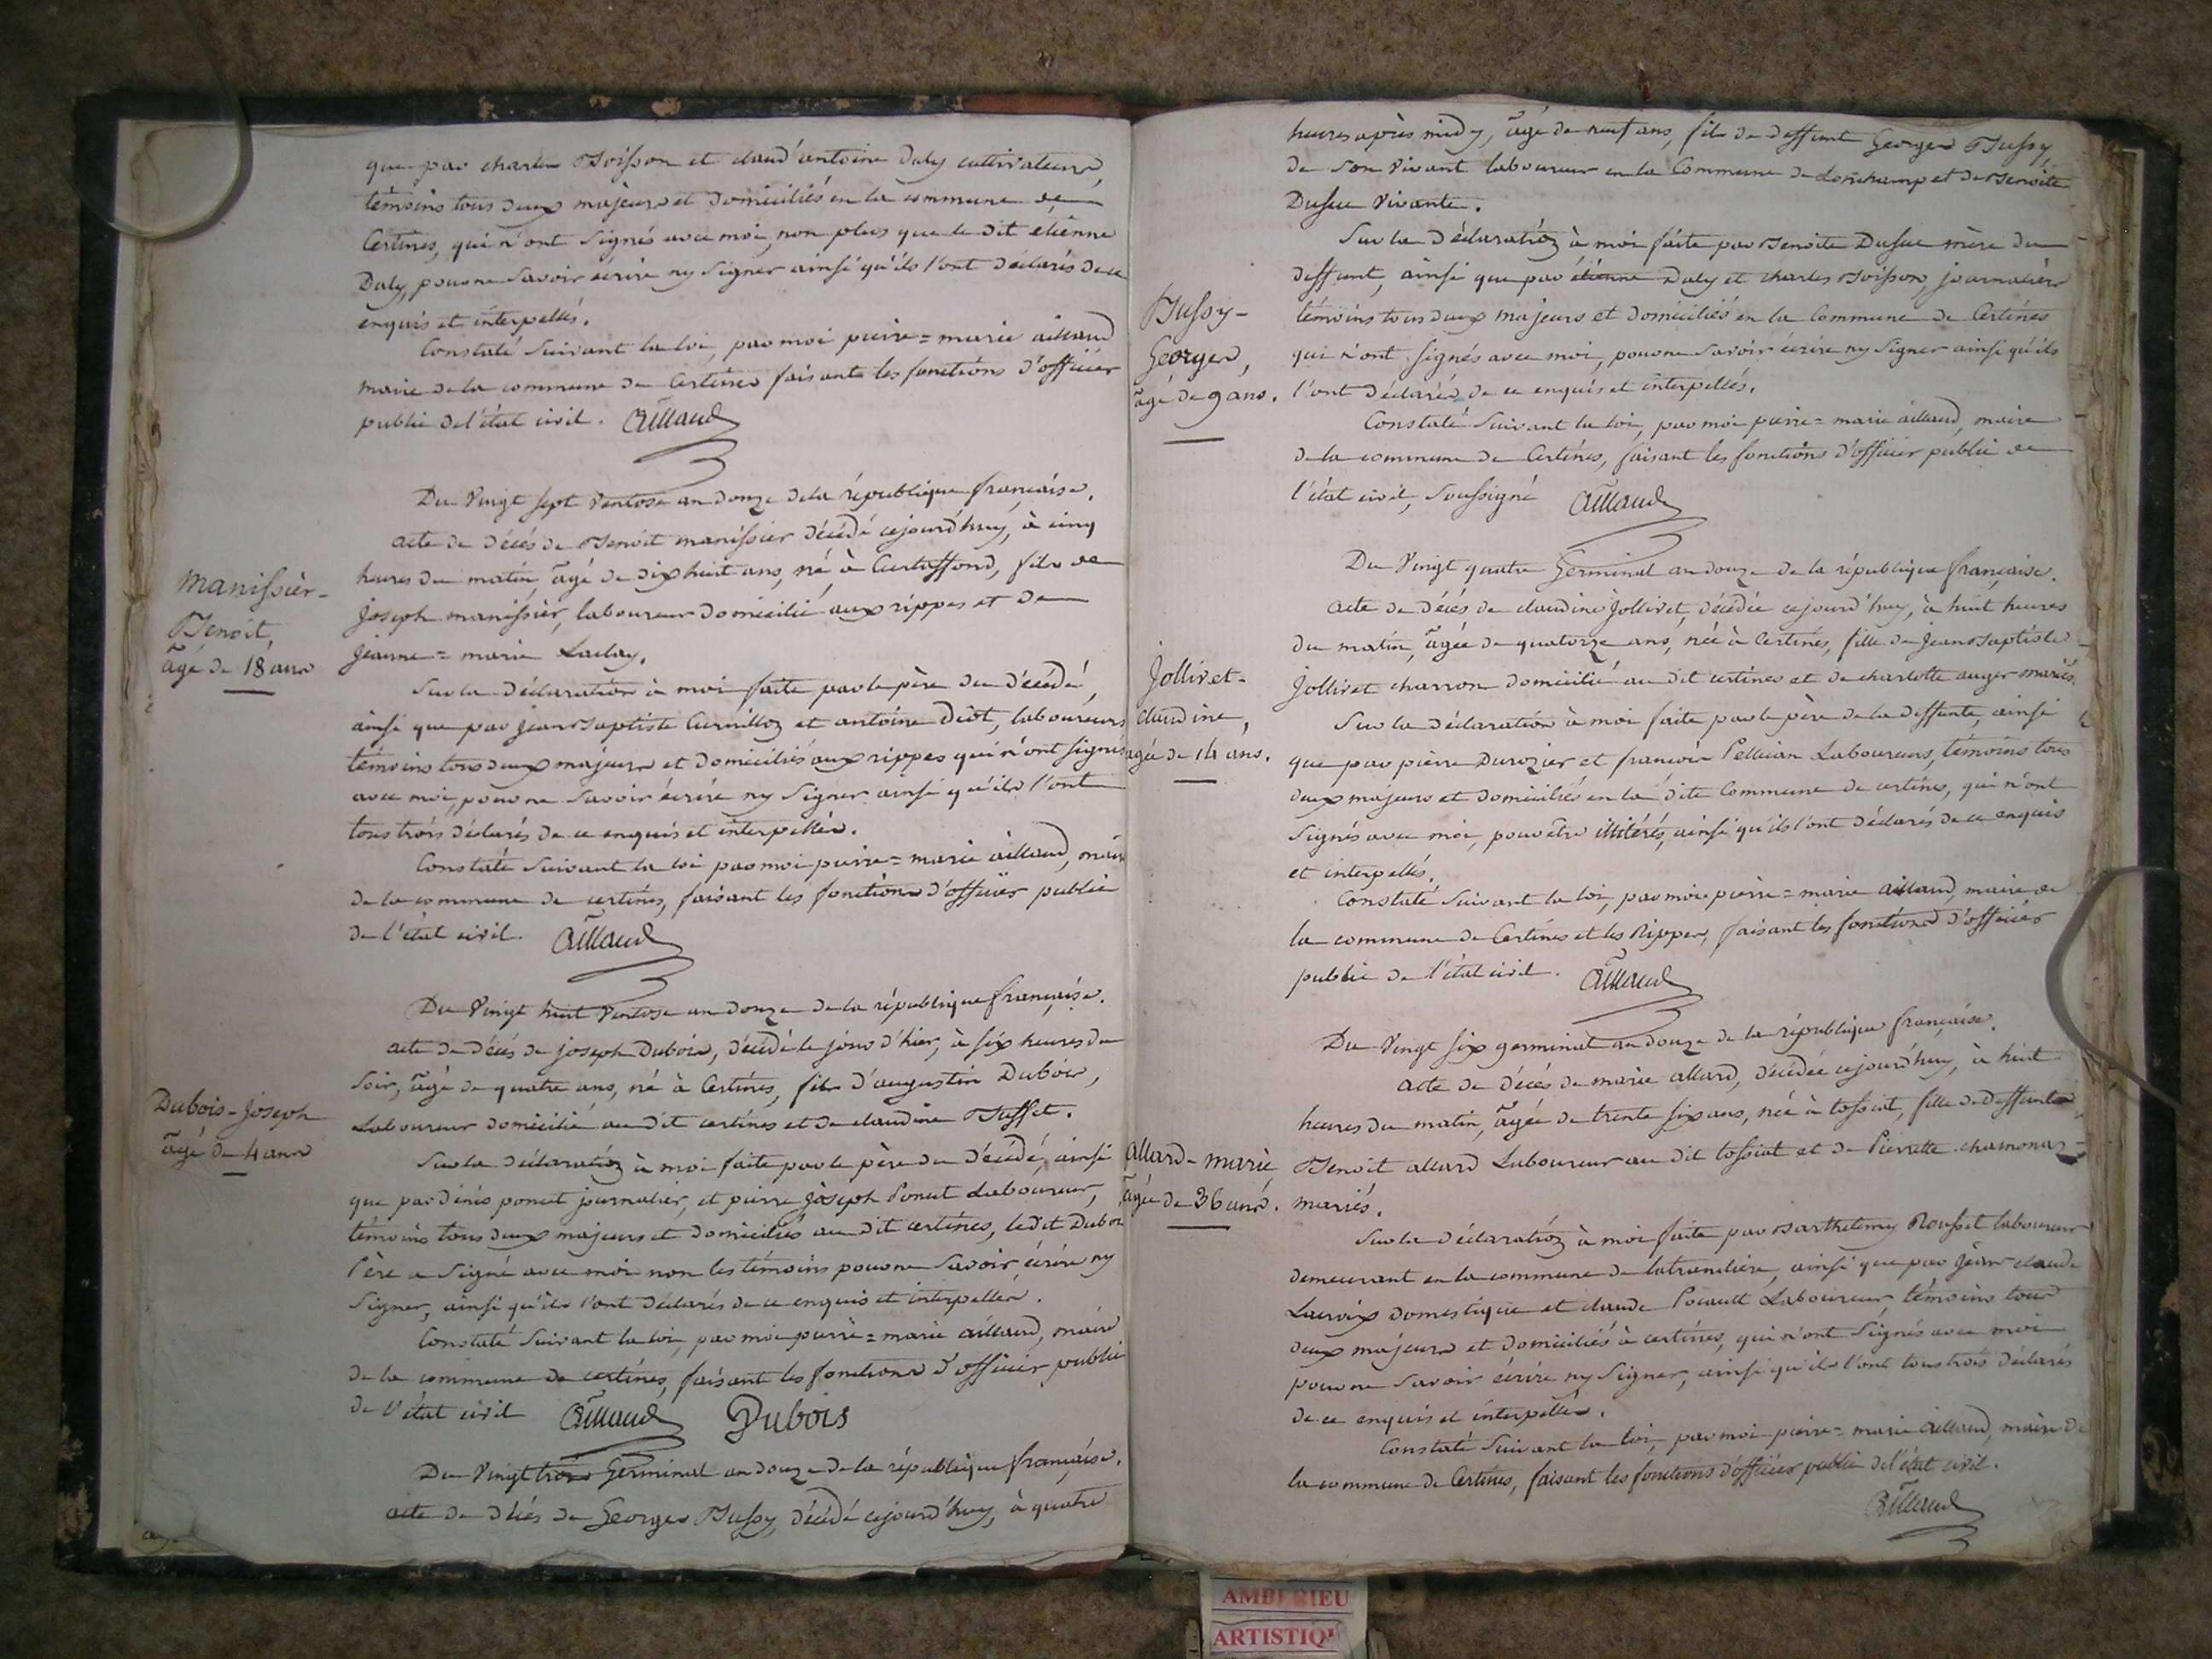 que par charles Boisson et claud'antoine Daly cultivateurs,
témoins tous deux majeurs et domiciliés en la commune de
Certines, qui n'ont signés avec moi, non plus que le dit etienne
Daly, pour ne savoir écrire ny signer ainsi qu'ils l'ont déclarés de ce
enquis et interpellés.
Constaté suivant la loi, par moi pierre=marie aillaud
maire de la commune de Certines faisant les fonctions d'officier
public de l'état civil. Aillaud
Du Vingt sept Ventose an douze de la république française.
acte de décés de Benoit manissier décédé cejourd'huy, à cinq
heures du matin, agé de dix huit ans, né à Curtaffond, fils de
joseph manissier, laboureur domicilié aux rippes et de
jeanne=marie
Manissier-
Benoit,
agé de 18 ans
Sur la déclaration à moi faite par le père du décédé,
ainsi que par jean Baptiste et antoine Diot, laboureurs
témoins tous deux majeurs et domiciliés aux rippes qui n'ont signés
avec moi, pour ne savoir écrire ny signer ainsi qu'ils l'ont
tous trois déclarés de ce enquis et interpellés.
Constaté suivant la loi par moi pierre=marie aillaud, maire
de la commune de certines, faisant les fonctions d'officier public
de l'état civil. Aillaud
Du Vingt huit Ventose an douze de la république française.
acte de décés de joseph Dubois, décédé le jour d'hier, à six heures du
soir, agé de quatre ans, né à Certines, fils d'augustin Dubois,
Laboureur domicilié au dit certines et de claudine Buffet.
Dubois-Joseph
agé de 4 ans
Sur la déclaration à moi faite par le père du décédé, ainsi
que par dénis poncet journalier, et pierre joseph Poncet Laboureur,
témoins tous deux majeurs et domiciliés au dit certines, le dit Dubois
Père a signé avec moi non les témoins pour ne savoir écrire ny
signer, ainsi qu'ils l'ont déclarés de ce enquis et interpeller.
Constaté suivant la loi, par moi pierre=marie aillaud, maire
de la commune de certines, faisant les fonctions d'officier public
de l'état civil Aillaud Dubois
Du Vingt trois Germinal an douze de la république française.
acte de décés de Georges Bussy, décédé cejourd'huy, à quatre
heures après midy, agé de neuf ans, fils de deffunt Georges Bussy,
de son vivant laboureur en la Commune de Lonchamp et de Benoite
Dufue vivante.
Sur la déclaration à moi faite par Benoite Dufue mère du
deffunt, ainsi que par étienne Daly et charles Boisson, journaliers
témoins tous deux majeurs et domiciliés en la Commune de Certines
qui n'ont signés avec moi, pour ne savoir écrire ny signer ainsi qu'ils
l'ont déclarés de ce enquis et interpellés.
Bussy-
Georges,
agé de 9 ans.
Constaté suivant la loi, par moi pierre=marie aillaud, maire
de la commune de Certines, faisant les fonctions d'officier public de
l'état civil, soussigné Aillaud
Du Vingt quatre Germinal an douze de la république française.
acte de décés de claudine Jollivet, décédée cejourd'huy, à huit heures
du matin, agée de quatorze ans, née à Certines, fille de Jean Baptiste
Jollivet charron domicilié au dit certines et de charlotte auger mariés.
Jollivet-
claudine,
agée de 14 ans.
Sur la déclaration à moi faite par le père de la deffunte, ainsi
que par pierre Durozier et francois Laboureurs, témoins tous
deux majeurs et domiciliés en la dite Commune de certines, qui n'ont
signés avec moi, pour être illitérés, ainsi qu'ils l'ont déclarés de ce enquis
et interpellés.
Constaté suivant la loi, par moi pierre=marie aillaud, maire de
la commune de Certines et les Rippes, faisant les fonctions d'officier
public de l'état civil. Aillaud
Du Vingt six germinal an douze de la république française.
Acte de décés de marie allard, décédée cejourd'huy, à huit
heures du matin, agée de trente six ans, née à tossiat, fille de deffunts
Benoit allard Laboureur au dit tossiat et de Pierrette chamonaz
mariés.
Allard-marie
agée de 36 ans.
Sur la déclaration à moi faite par Barthelemy Rousset laboureur
demeurant en la commune de latranclière, ainsi que par Jean claude
Lacroix domestique et claude Laboureur, témoins tous
deux majeurs et domiciliés à certines, qui n'ont signés avec moi
pour ne savoir écrire ny signer, ainsi qu'ils l'ont tous trois déclarés
de ce enquis et interpellés.
Constaté suivant la loi, par moi pierre=marie aillaud, maire de
la commune de Certines, faisant les fonctions d'officier public de l'état civil.
Aillaud
AMBERIEU
ARTISTIQU